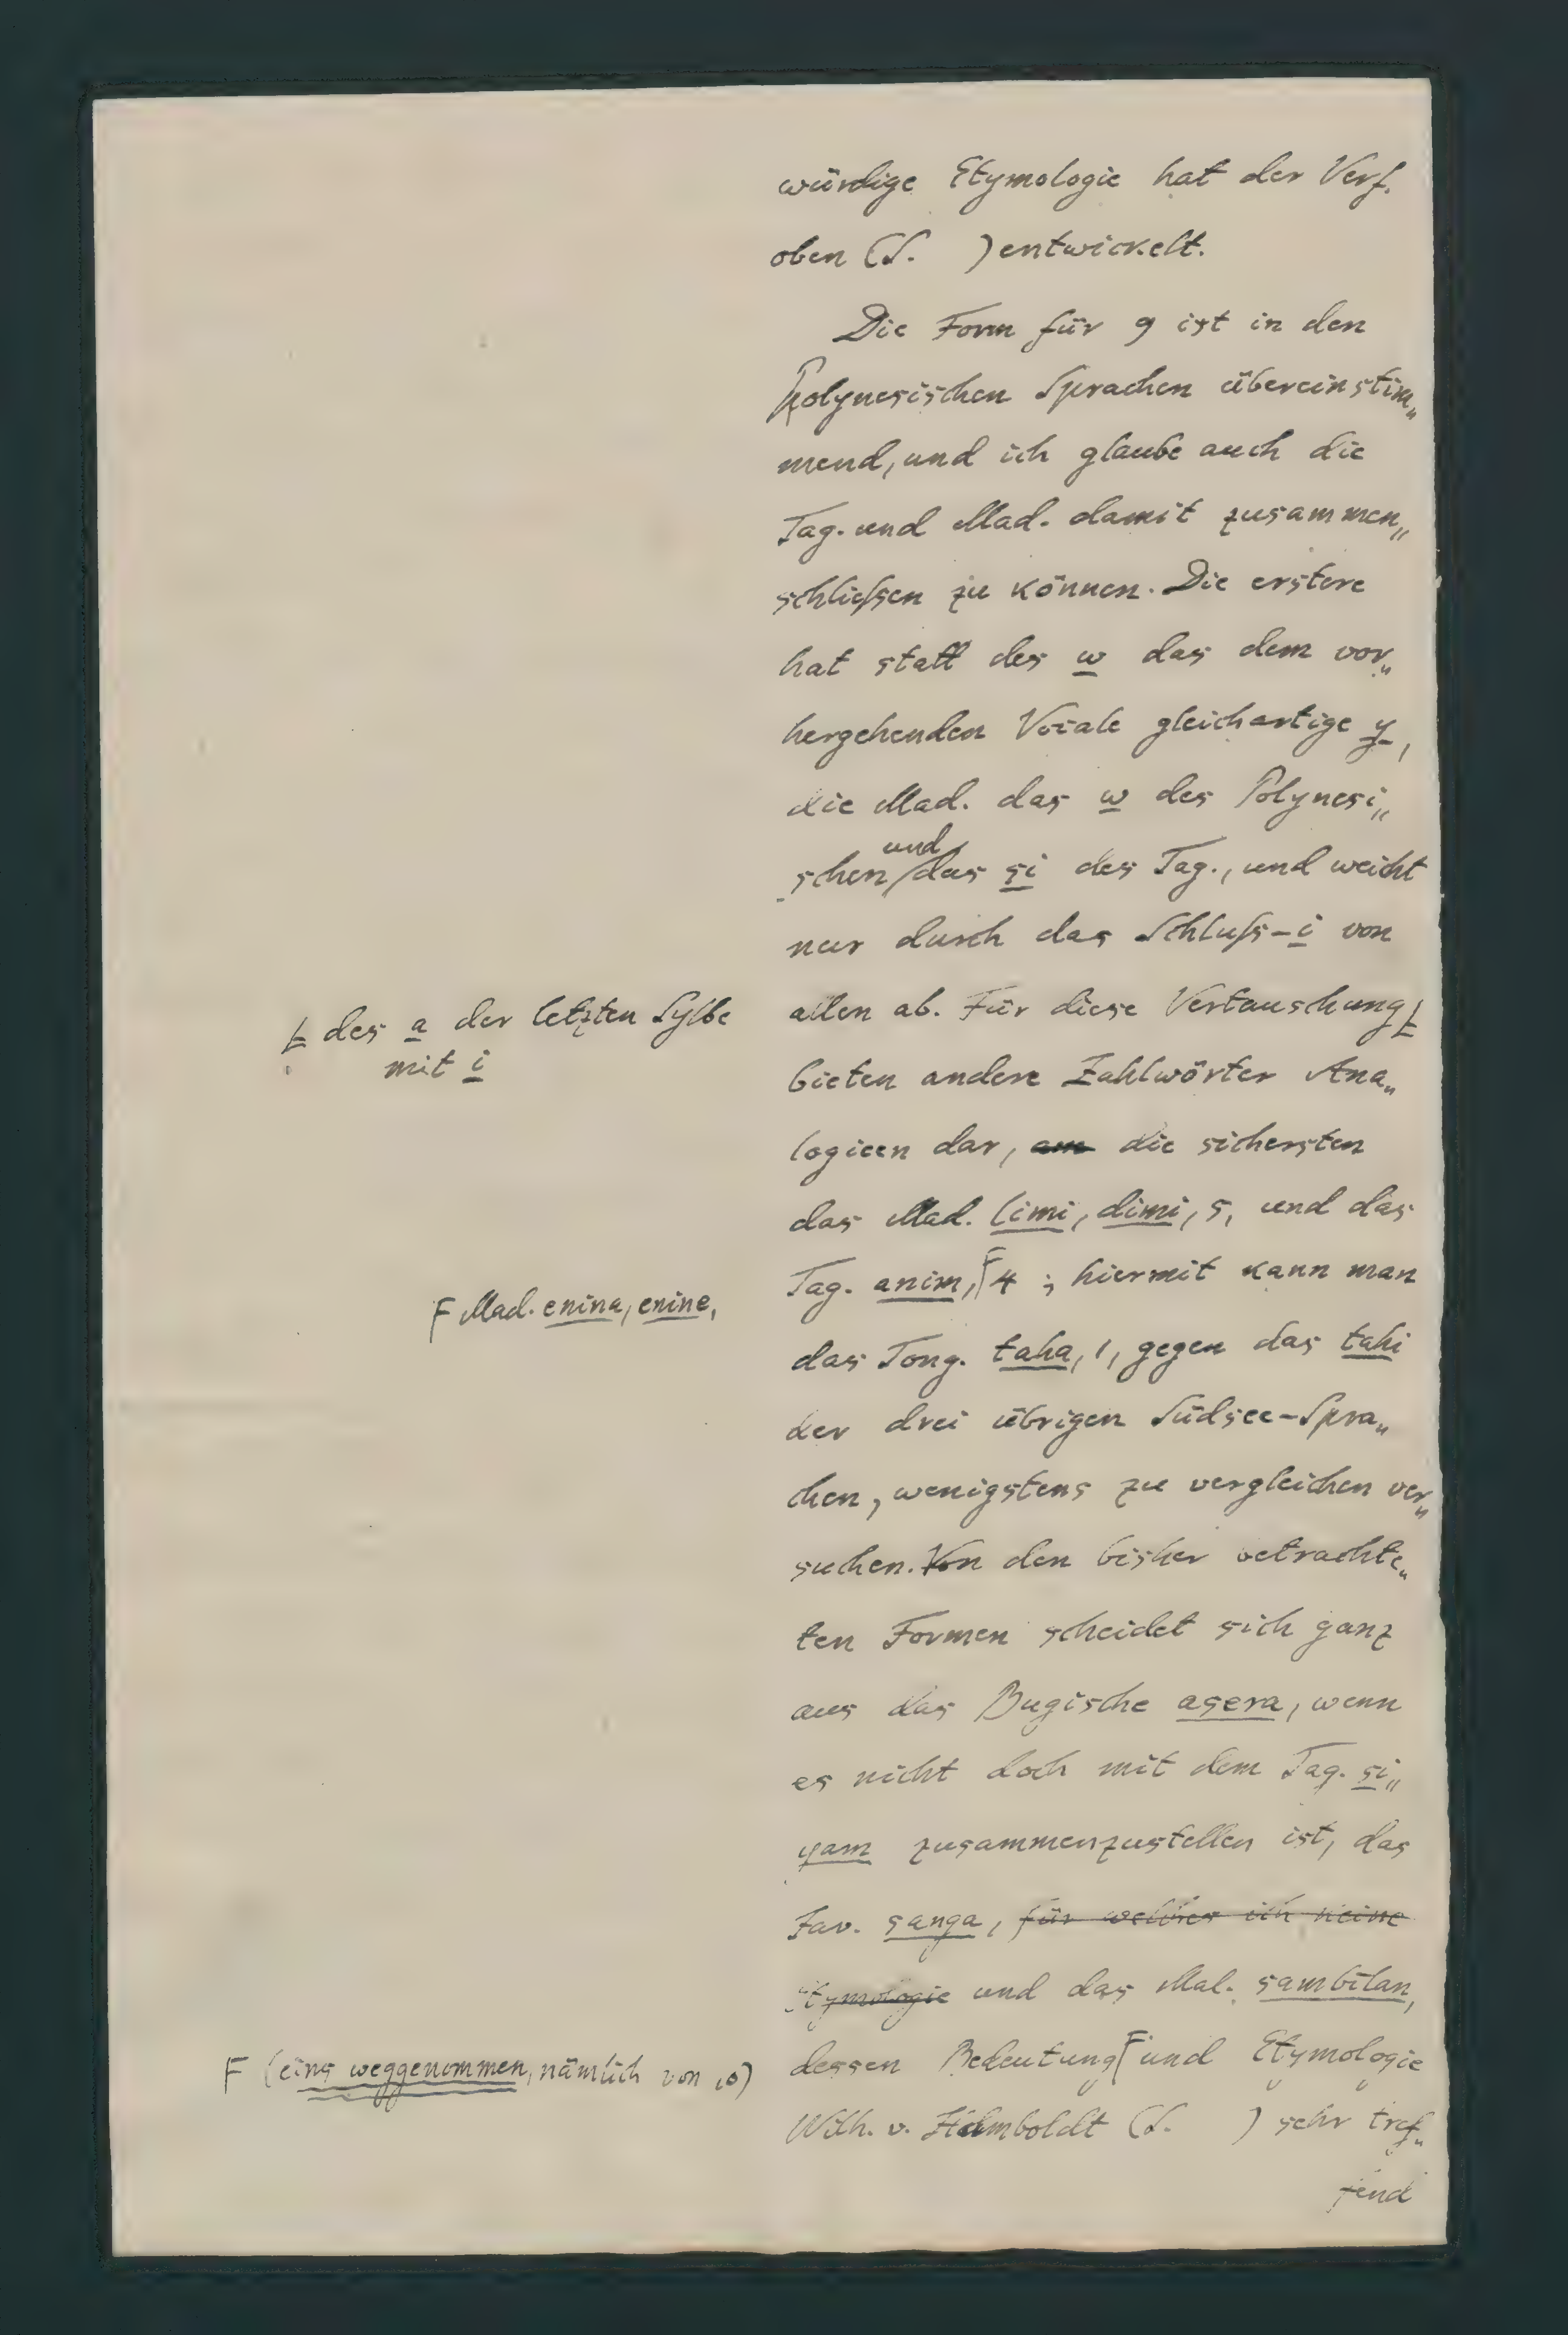 würdige Etymologie hat der Verf.
oben (S. ) entwickelt.
Die Form für 9 ist in den
Polynesischen Sprachen übereinstim„
mend, und ich glaube auch die
Tag. und Mad. damit zusammen„
schließen zu können. Die erstere
hat statt des w das dem vor„
hergehenden Vocale gleichartige y,
die Mad. das w des Polynesi„
und
schen das si des Tag., und weicht
nur durch das Schluß-i von
allen ab. Für diese Vertauschung
des a der letzten Sylbe
mit i
bieten andere Zahlwörter Ana„
logieen dar, am die sichersten
das Mad. limi, dimi, 5, und das
Tag. anim, 4 ; hiermit kann man
F Mad. enina, enine,
das Tong. taha, 1, gegen das tahi
der drei übrigen Südsee-Spra„
chen, wenigstens zu vergleichen ver„
suchen. Von den bisher betrachte„
ten Formen scheidet sich ganz
aus das Bugische asera, wenn
es nicht doch mit dem Tag. si„
yam zusammenzustellen ist, das
Jav. sanga, für welches ich keine
Etymologie und das Mal. sambilan,
dessen Bedeutung F und Etymologie
F (eins weggenommen, nämlich von 10)
Wilh. v. Humboldt (S. ) sehr tref„
fend